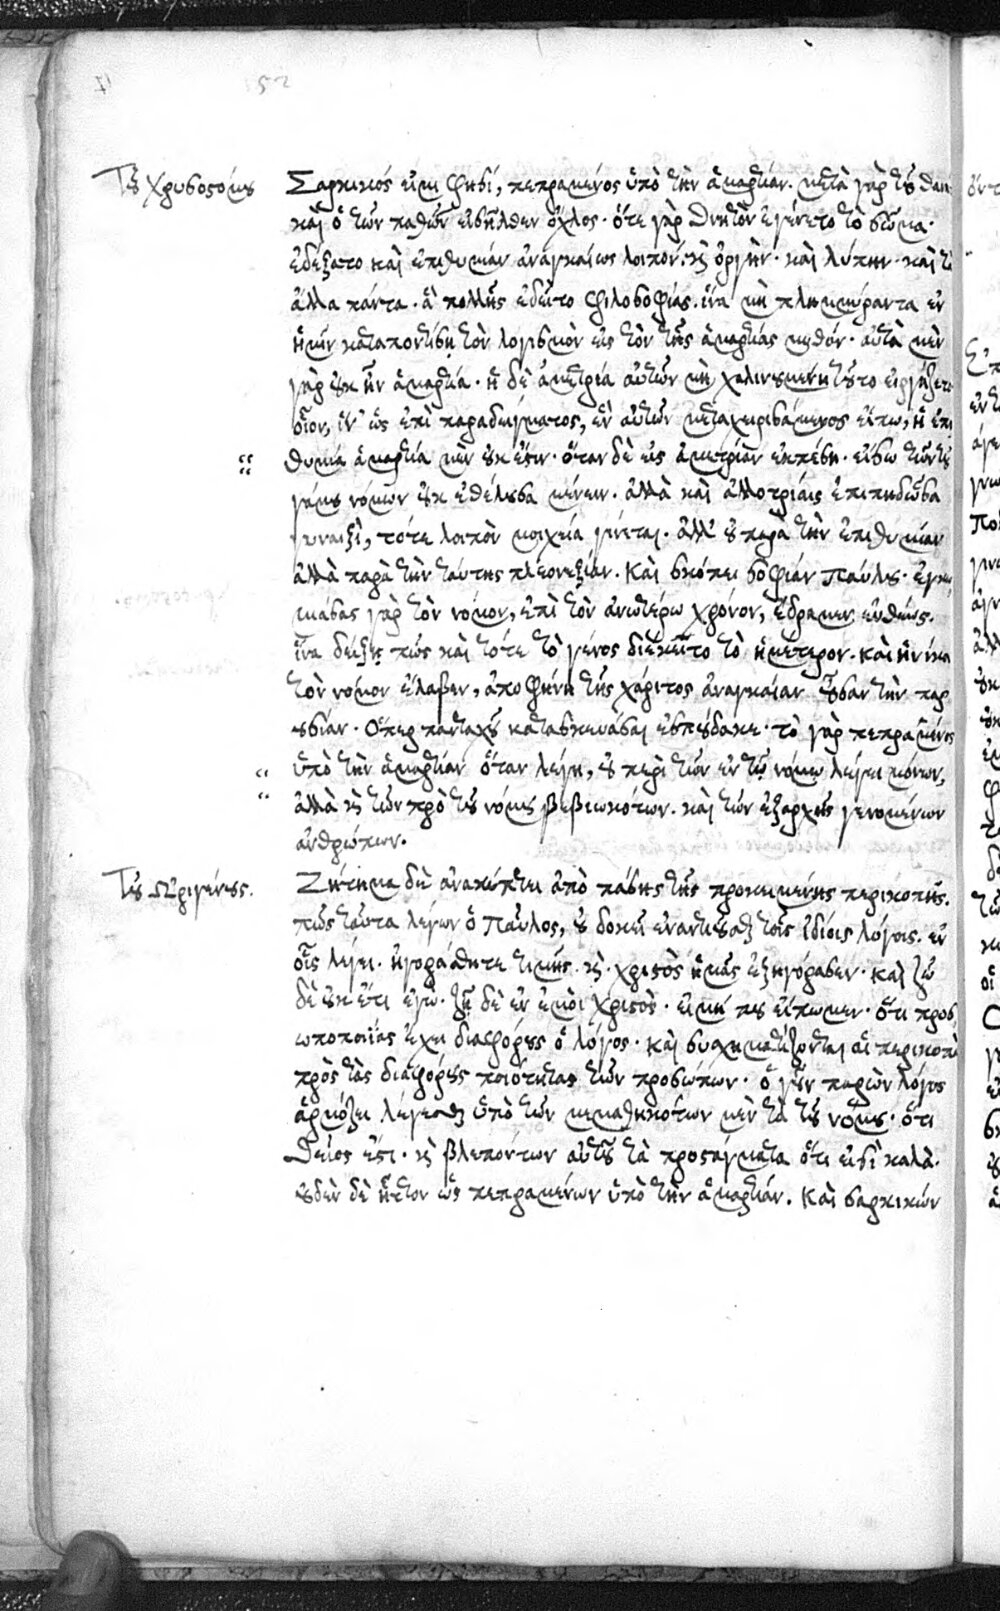 152
Τοῦ Χρυσοστόμου
Σαρκικός εἰμι φησί, πεπραμένος ὑπὸ τὴν ἁμαρτίαν. μετὰ γὰρ τοῦ θαν
καὶ ὁ τῶν παθῶν εἰσῆλθεν ὄχλος. ὅτε γὰρ θνητὸν ἐγένετο τὸ σῶμα.
ἐδέξατο καὶ ἐπιθυμίαν ἀναγκαίως λοιπόν. κ ὀργὴν. καὶ λύπην. καὶ τὰ
ἄλλα πάντα. ἃ πολλῆς ἐδεῖτο φιλοσοφίας. ἵνα μὴ πλημμύραντα ἐν
ἡμῖν καταποντίσῃ τὸν λογισμὸν εἰς τὸν τῆς ἁμαρτίας βυθόν. αὐτὰ μὲν
γὰρ οὐκ ἦν ἁμαρτία. ἡ δὲ ἀμετρία αὐτῶν μὴ χαλινουμένη τοῦτο εἰργάζετο
οἷον, ἵν' ὡς ἐπὶ παραδείγματος, ἓν αὐτῶν μεταχειρισάμενος εἴπω, ἡ ἐπι
θυμία ἁμαρτία μὲν οὐκ ἔστιν. ὅταν δὲ εἰς ἀμετρίαν ἐκπέσῃ. εἴσω τῶν τοῦ
γάμου νόμων οὐκ ἐθέλουσα μένειν. ἀλλὰ καὶ ἀλλοτρίαις ἐπιπηδῶσα
γυναιξὶ, τότε λοιπὸν μοιχεία γίνεται. ἀλλ' οὐ παρὰ τὴν ἐπιθυμίαν
ἀλλὰ παρὰ τὴν ταύτης πλεονεξίαν. Καὶ σκόπει σοφίαν Παύλου. ἐγκω
μιάσας γὰρ τὸν νόμον, ἐπὶ τὸν ἀνωτέρω χρόνον, ἔδραμεν εὐθέως.
ἵνα δείξῃ πῶς καὶ τότε τὸ γένος διέκειτο τὸ ἡμέτερον. καὶ ἡνίκα
τὸν νόμον ἔλαβεν, ἀποφήνῃ τῆς χάριτος ἀναγκαίαν οὖσαν τὴν παρ
ουσίαν. Ὅπερ πανταχοῦ κατασκευάσαι ἐσπούδακε. τὸ γὰρ πεπραμένος
ὑπὸ τὴν ἁμαρτίαν ὅταν λέγῃ, οὐ περὶ τῶν ἐν τῷ νόμῳ λέγει μόνων,
ἀλλὰ κ τῶν πρὸ τοῦ νόμου βεβιωκότων. καὶ τῶν ἐξαρχῆς γενομένων
ἀνθρώπων.
Τοῦ Ὠριγένους.
Ζήτημα δὲ ἀνακύπτει ἀπὸ πάσης τῆς προκειμένης περικοπῆς.
πῶς ταῦτα λέγων ὁ Παῦλος, οὐ δοκεῖ ἐναντιοῦσθαι τοῖς ἰδίοις λόγοις. ἐν
οἷς λέγει. ἠγοράσθητε τιμῆς. κ. χριστὸς ἡμᾶς ἐξηγόρασεν. καὶ ζῶ
δὲ οὐκ ἔτι ἐγώ. ζῇ δὲ ἐν ἐμοὶ χριστὸς. εἰ μή που εἴπωμεν. ὅτι προσ
ωποποιίας ἔχει διαφόρους ὁ λόγος. καὶ συσχηματίζονται αἱ περικοπαὶ
πρὸς τὰς διαφόρους ποιότητας τῶν προσώπων. ὁ γοῦν παρὼν λόγος
ἁρμόζει λέγεσθαι ὑπὸ τῶν μεμαθηκότων μὲν τὰ τοῦ νόμου. ὅτι
θεῖος ἐστι. κ βλεπόντων αὐτοῦ τὰ προστάγματα ὅτι εἰσὶ καλὰ.
οὐδὲν δὲ ἧττον ὡς πεπραμένων ὑπὸ τὴν ἁμαρτίαν. Καὶ σαρκικῶν